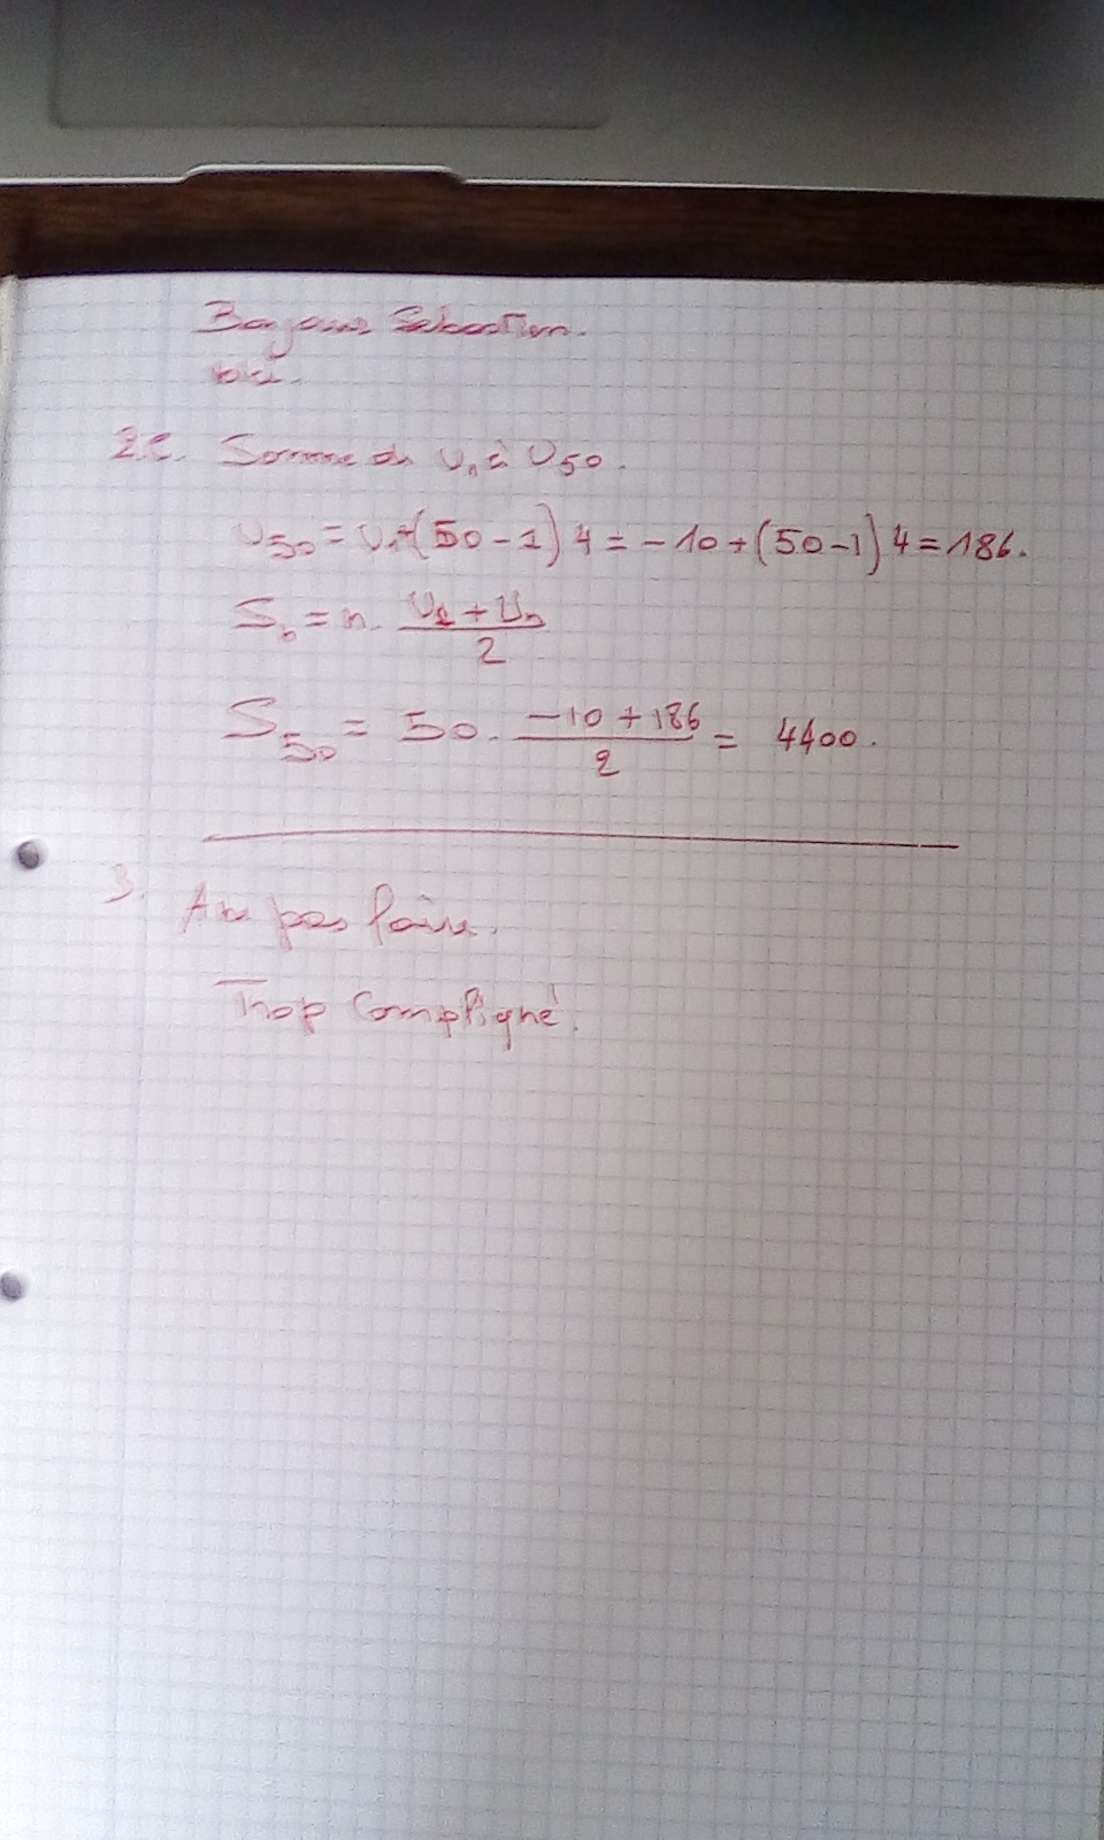 Bonjour Sébastien.
2.c. Somme de U₁ à U50.
U50 = U₁+(50-1)4 = -10+(50-1)4 = 186.
Sn = n. (U1+Un)/2
S50 = 50. (-10+186)/2 = 4400.
3. A ne pas faire.
Trop compliqué.